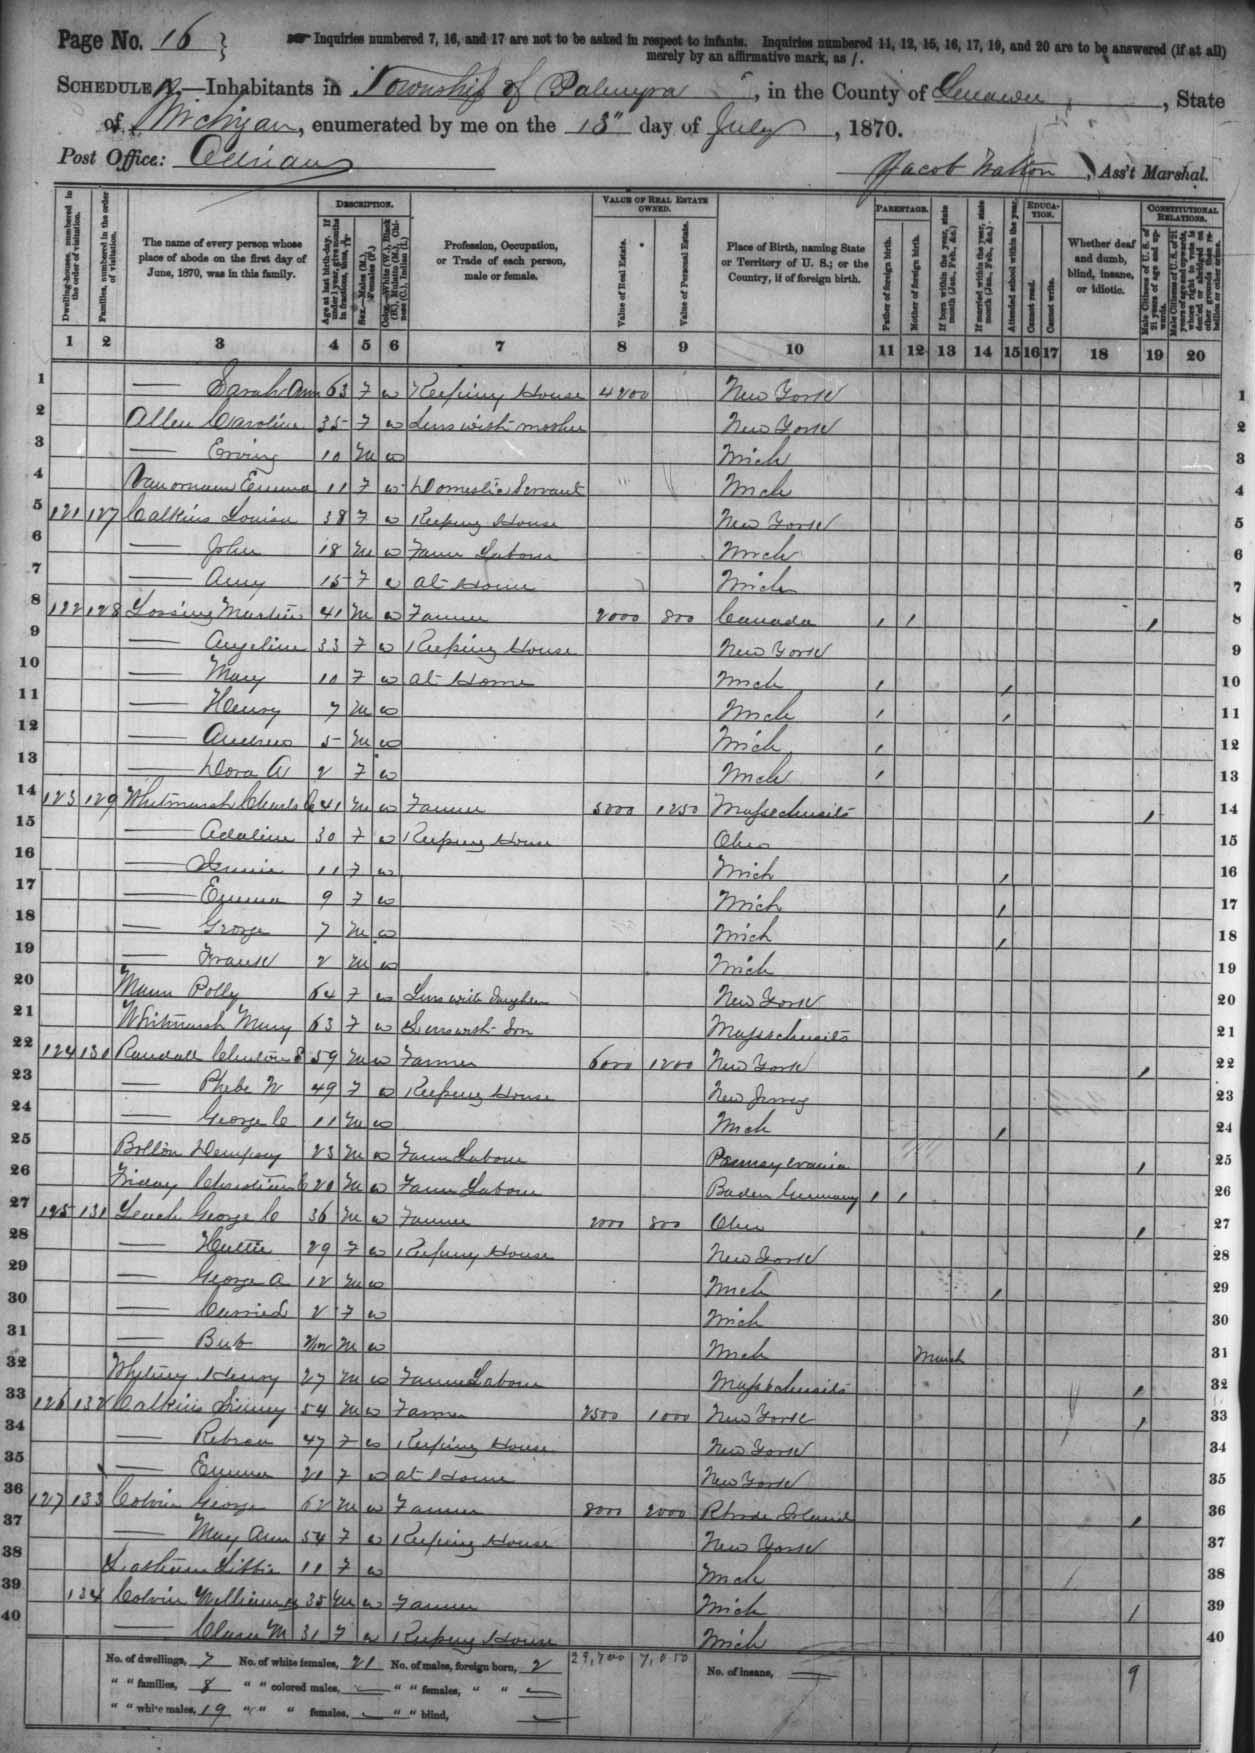 Page No. 16
Inquiries numbered 7, 16, and 17 are not to be asked in respect to infants. Inquiries numbered 11, 12, 15, 16, 17, 19, and 20 are to be answered (if at all)
merely by an affirmative mark, as /.
SCHEDULE 1.—Inhabitants in Township of Palmyra, in the County of Lenawee, State
of Michigan, enumerated by me on the 13" day of July, 1870.
Post Office: Adrian
Jacob Walton, Ass't Marshal.
Dwelling-houses, numbered in the order of visitation.
Families, numbered in the order of visitation.
The name of every person whose place of abode on the first day of June, 1870, was in this family.
DESCRIPTION.
Age at last birth-day. If under 1 year, give months in fractions, thus,
Sex.—Males (M.), Females (F.)
Color.—White (W.), Black (B.), Mulatto (M.), Chinese (C.), Indian (I.)
Profession, Occupation, or Trade of each person, male or female.
VALUE OF REAL ESTATE OWNED.
Value of Real Estate.
Value of Personal Estate.
Place of Birth, naming State or Territory of U. S.; or the Country, if of foreign birth.
PARENTAGE.
Father of foreign birth.
Mother of foreign birth.
If born within the year, state month (Jan., Feb., &c.)
If married within the year, state month (Jan., Feb., &c.)
Attended school within the year.
EDUCATION.
Cannot read.
Cannot write.
Whether deaf and dumb, blind, insane, or idiotic.
CONSTITUTIONAL RELATIONS.
Male Citizens of U. S. of 21 years of age and upwards.
Male Citizens of U. S. of 21 years of age and upwards, whose right to vote is denied or abridged on other grounds than rebellion or other crime.
1 2 3 4 5 6 7 8 9 10 11 12 13 14 15 16 17 18 19 20
1 — Sarah Ann 63 F W Keeping House 4200 New York 1
2 Allen Caroline 35 F W Lives with mother New York 2
3 — Erving 10 M W Mich 3
4 Emma 11 F W Domestic Servant Mich 4
5 121 127 Calkins Louisa 38 F W Keeping House New York 5
6 — John 18 M W Farm Laborer Mich 6
7 — Amy 15 F W At Home Mich 7
8 122 128 Lossing Martin 41 M W Farmer 2000 800 Canada / / / 8
9 — Angeline 33 F W Keeping House New York 9
10 — Mary 10 F W At Home Mich / / 10
11 — Henry 7 M W Mich / / 11
12 — Andrew 5 M W Mich / 12
13 — Dora A 2 F W Mich / 13
14 123 129 Whitmarsh Charles C 41 M W Farmer 5000 1250 Massachusetts / 14
15 — Adaline 30 F W Keeping House Ohio 15
16 — Jennie 11 F W Mich / 16
17 — Emma 9 F W Mich / 17
18 — George 7 M W Mich / 18
19 — Frank 2 M W Mich 19
20 Mann Polly 64 F W Lives with Daughter New York 20
21 Whitmarsh Mary 63 F W Lives with Son Massachusetts 21
22 124 130 Randall 59 M W Farmer 6000 1200 New York / 22
23 — Phebe W 49 F W Keeping House New Jersey 23
24 — George C 11 M W Mich / 24
25 Bolton Dempsey 23 M W Farm Laborer Pennsylvania / 25
26 Friday Christian C 20 M W Farm Laborer Baden Germany / / 26
27 125 131 Leach George C 36 M W Farmer 2000 800 Ohio / 27
28 — Hettie 29 F W Keeping House New York 28
29 — George A 12 M W Mich / 29
30 — Carrie L 2 F W Mich 30
31 — Bub M W Mich March 31
32 Whitney Henry 27 M W Farm Laborer Massachusetts / 32
33 126 132 Calkins 54 M W Farmer 2500 1000 New York / 33
34 — 47 F W Keeping House New York 34
35 — Emma 21 F W At Home New York 35
36 127 133 Colvin George 62 M W Farmer 8000 2000 Rhode Island / 36
37 — Mary Ann 54 F W Keeping House New York 37
38 Libbie 11 F W Mich 38
39 134 Colvin William 35 M W Farmer Mich / 39
40 — M 31 F W Keeping House Mich 40
No. of dwellings, 7 No. of white females, 21 No. of males, foreign born, 2 29,700 7,050 No. of insane, — 9
" " families, 8 " " colored males, — " " females, " " —
" " white males, 19 " " " females, — " " blind, —